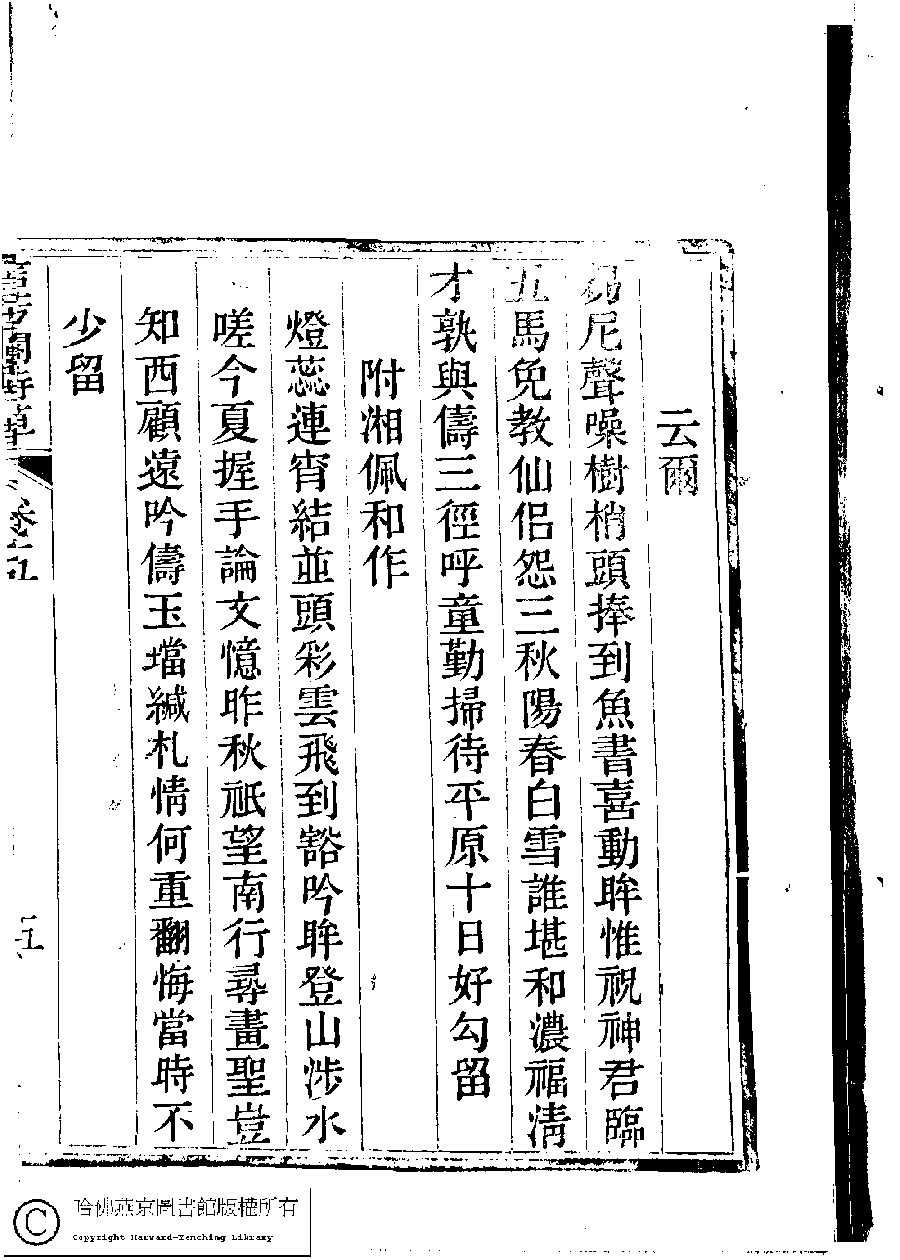 云爾
芻尼聲噪樹梢頭捧到魚書喜動眸惟祝神君臨
五馬免教仙侶怨三秋陽春白雪誰堪和濃福清
才孰與儔三徑呼童勤掃待平原十日好勾留
附湘佩和作
燈蕊連宵結並頭彩雲飛到豁吟眸登山涉水
嗟今夏握手論文憶昨秋祇望南行尋畫聖豈
知西顧遠吟儔玉璫緘札情何重翻悔當時不
少留
卷五
五
哈佛燕京圖書館版權所有
Copyright Harvard-Yenching Library